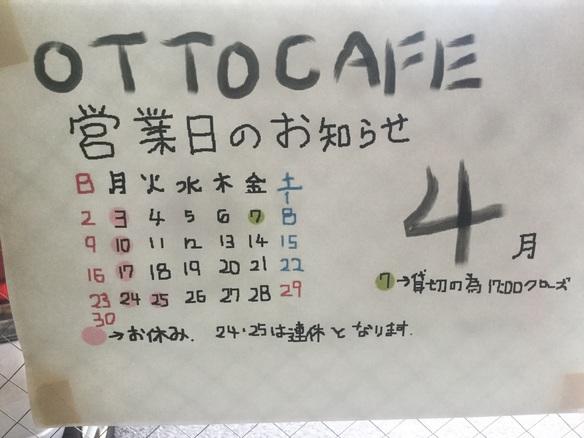 OTTO CAFE
営業日のお知らせ
日 月 火 水 木 金 土
1
2 3 4 5 6 7 8
9 10 11 12 13 14 15
16 17 18 19 20 21 22
23 24 25 26 27 28 29
30
4月
7→貸切の為17:00クローズ
→お休み. 24・25は連休となります.